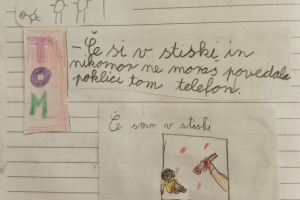 TOM
- Če si v stiski in
nikomor ne moraš povedala
pokliči tom telefon.
Če smo v stiski